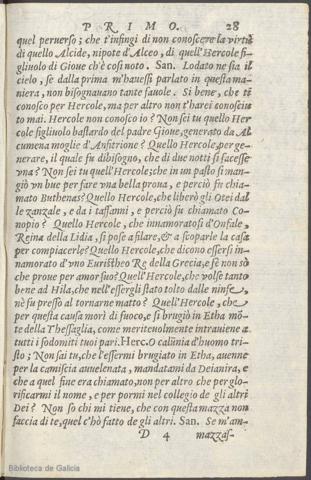 PRIMO. 28
quel peruerso; che t'infingi di non conoscere la virtù
di quello Alcide, nipote d'Alceo, di quell'Hercole fi-
gliuolo di Gioue ch'è così noto. San. Lodato ne sia il
cielo, se dalla prima m'hauessi parlato in questa ma-
niera, non bisognauano tante fauole. Si bene, che ti
conosco per Hercole, ma per altro non t'harei conosciu
to mai. Hercole non conosco io? Non sei tu quello Her
cole figliuolo bastardo del padre Gioue, generato da Al
cumena moglie d'Anfitrione? Quello Hercole, per ge-
nerare, il quale fu dibisogno, che di due notti si facesse
vna? Non sei tu quell'Hercole; che in un pasto si man-
giò vn bue per fare vna bella proua, e perciò fu chia-
mato Buthenas? Quello Hercole, che liberò gli Otei dal
le zanzale, e da i taffanni, e perciò fu chiamato Co-
nopio? Quello Hercole, che innamoratosi d'Onfale,
Reina della Lidia, si pose a filare, & a scoparle la casa
per compiacerle? Quello Hercole, che dicono essersi in-
namorato d'vno Euristheo Re della Grecia, e fè non sò
che proue per amor suo? Quell'Hercole, che volse tanto
bene ad Hila, che nell'essergli stato tolto dalle ninfe,
nè fu presso al tornarne matto? Quell'Hercole, che
per questa causa morì di fuoco, e si brugiò in Etha mõ-
te della Thessaglia, come meriteuolmente intrauiene a
tutti i sodomiti tuoi pari. Herc. O calũnia d'huomo tri-
sto; Non sai tu, che l'essermi brugiato in Etha, auenne
per la camiscia auuelenata, mandatami da Deianira, e
che a quel fine era chiamato, non per altro che per glo-
rificarmi il nome, e per pormi nel collegio de gli altri
Dei? Non so chi mi tiene, che con questa mazza non
faccia di te, quel c'hò fatto de gli altri. San. Se m'am-
D 4 mazzas-
Biblioteca de Galicia